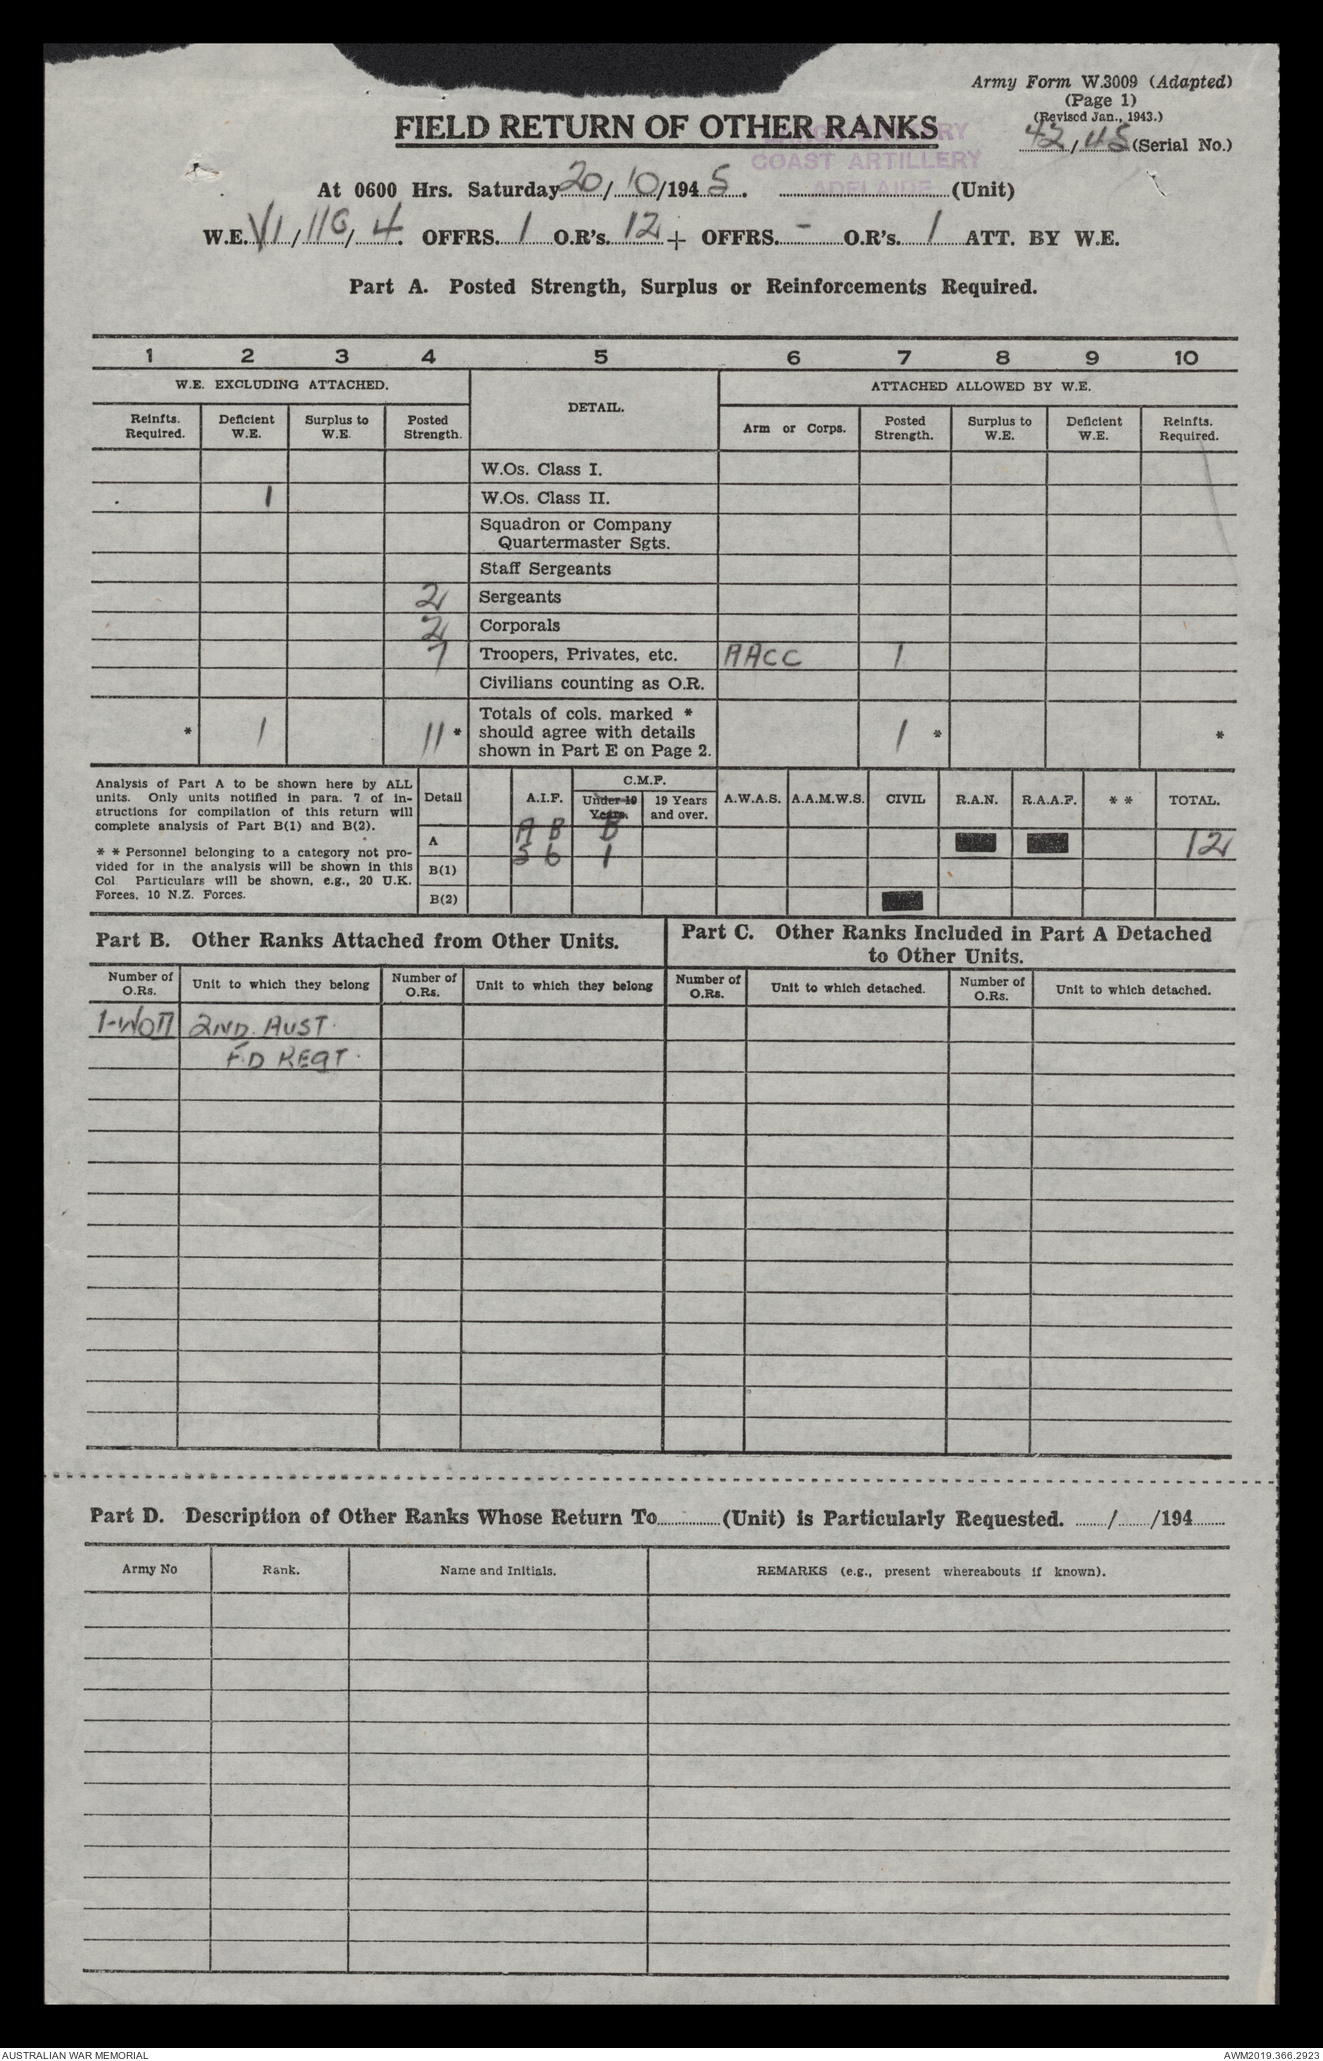 Army Form W.3009 (Adapted)
(Page 1)
(Revised Jan., 1943.)
42/45 (Serial No.)
FIELD RETURN OF OTHER RANKS
COAST ARTILLERY
ADELAIDE
At 0600 Hrs. Saturday 20/10/1945. (Unit)
W.E. VI/116/4. OFFRS. 1 O.R's. 12 + OFFRS. - O.R's. 1 ATT. BY W.E.
Part A. Posted Strength, Surplus or Reinforcements Required.
1 2 3 4 5 6 7 8 9 10
W.E. EXCLUDING ATTACHED. DETAIL. ATTACHED ALLOWED BY W.E.
Reinfts. Required. Deficient W.E. Surplus to W.E. Posted Strength. Arm or Corps. Posted Strength. Surplus to W.E. Deficient W.E. Reinfts. Required.
W.Os. Class I.
1 W.Os. Class II.
Squadron or Company
Quartermaster Sgts.
Staff Sergeants
2 Sergeants
2 Corporals
7 Troopers, Privates, etc. AACC 1
Civilians counting as O.R.
Totals of cols. marked *
* 1 11 * should agree with details 1 * *
shown in Part E on Page 2.
Analysis of Part A to be shown here by ALL
units. Only units notified in para. 7 of in-
structions for compilation of this return will
complete analysis of Part B(1) and B(2).
* * Personnel belonging to a category not pro-
vided for in the analysis will be shown in this
Col Particulars will be shown, e.g., 20 U.K.
Forces, 10 N.Z. Forces.
C.M.F.
Detail A.I.F. Under 19 Years. 19 Years and over. A.W.A.S. A.A.M.W.S. CIVIL R.A.N. R.A.A.F. * * TOTAL.
A B B
A 5 6 1 12
B(1)
B(2)
Part B. Other Ranks Attached from Other Units.
Part C. Other Ranks Included in Part A Detached
to Other Units.
Number of O.Rs. Unit to which they belong Number of O.Rs. Unit to which they belong Number of O.Rs. Unit to which detached. Number of O.Rs. Unit to which detached.
1-WOII 2ND. AUST.
FD REGT.
Part D. Description of Other Ranks Whose Return To (Unit) is Particularly Requested. / /194
Army No Rank. Name and Initials. REMARKS (e.g., present whereabouts if known).
AUSTRALIAN WAR MEMORIAL AWM2019.366.2923